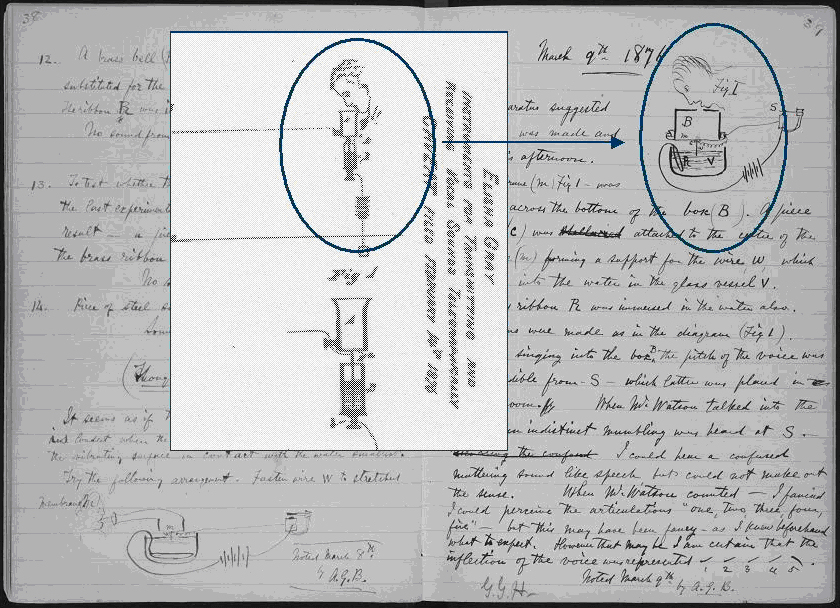 38
12. A brass bell (
substituted for the
The ribbon R was i
No sound from
13. To test whether t
the last experiment
result a
the brass ribbon
No s
14. Piece of steel s
(Thoug
It seems as if
the vibrating surface in contact with the water
Try the following arrangement. Fasten wire W to stretched
membrane (m).
m
Noted March 8th
by A.G.B.
Fig 1
ELISHA GRAY
INSTRUMENTS FOR TRANSMITTING AND
RECEIVING VOCAL SOUNDS TELEGRAPHICALLY
CAVEAT FILED FEBRUARY 14TH 1876
39
March 9th 1876
Fig 1
S
B
m
R V
aratus suggested
was made and
s afternoon.
(m) Fig 1 - was
across the bottom of the box (B). A piece
(c) was attached to the centre of the
(m) forming a support for the wire W, which
into the water in the glass vessel V.
ribbon R was immersed in the water also.
s were made as in the diagram (Fig 1).
singing into the box B, the pitch of the voice was
dible from - S - which latter was placed in
room. When Mr Watson talked into the
an indistinct mumbling was heard at S -
the confused I could hear a confused
muttering sound like speech but could not make out
the sense. When Mr Watson counted - I fancied
I could perceive the articulations "one, two, three, four,
five" - but this may have been fancy - as I knew beforehand
what to expect. However that may be I am certain that the
inflection of the voice was represented
1 2 3 4 5
G.G.H. Noted March 9th by A.G.B.